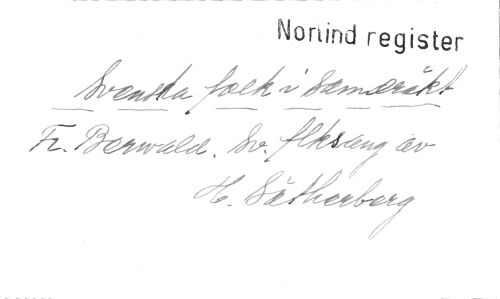 Nonind register
Svenska folk i samdräkt
Fr. Berwald. Sv. flksang av
H. Sätherberg